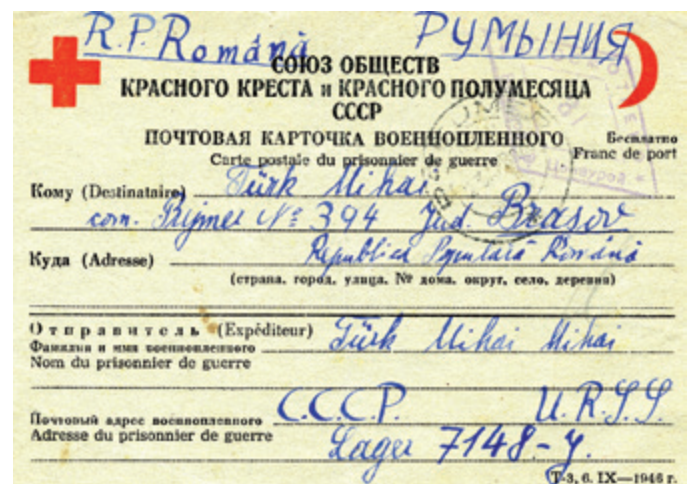 R.P. Română РУМЫНИЯ
СОЮЗ ОБЩЕСТВ
КРАСНОГО КРЕСТА и КРАСНОГО ПОЛУМЕСЯЦА
СССР
ПОЧТОВАЯ КАРТОЧКА ВОЕННОПЛЕННОГО Бесплатно
Carte postale du prisonnier de guerre Franc de port
Кому (Destinataire) Türk Mihai
com. Prijmer № 394 Jud. Brasov
Куда (Adresse) Republica Populară Română
(страна, город, улица, № дома, округ, село, деревня)
Отправитель (Expéditeur) Türk Mihai Mihai
Фамилия и имя военнопленного
Nom du prisonnier de guerre
С.С.С.Р. U.R.S.S.
Почтовый адрес военнопленного
Adresse du prisonnier de guerre Lager 7148-y.
Т-3, 6. IX—1946 г.